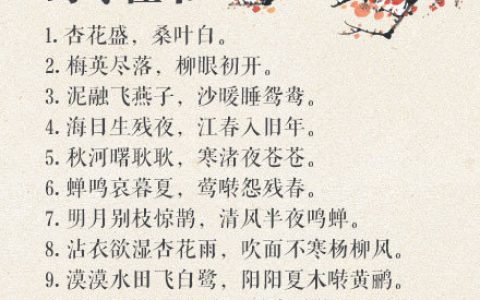 1. 杏花盛，桑叶白。
2. 梅英尽落，柳眼初开。
3. 泥融飞燕子，沙暖睡鸳鸯。
4. 海日生残夜，江春入旧年。
5. 秋河曙耿耿，寒渚夜苍苍。
6. 蝉鸣哀暮夏，莺啭怨残春。
7. 明月别枝惊鹊，清风半夜鸣蝉。
8. 沾衣欲湿杏花雨，吹面不寒杨柳风。
9. 漠漠水田飞白鹭，阳阳夏木啭黄鹂。